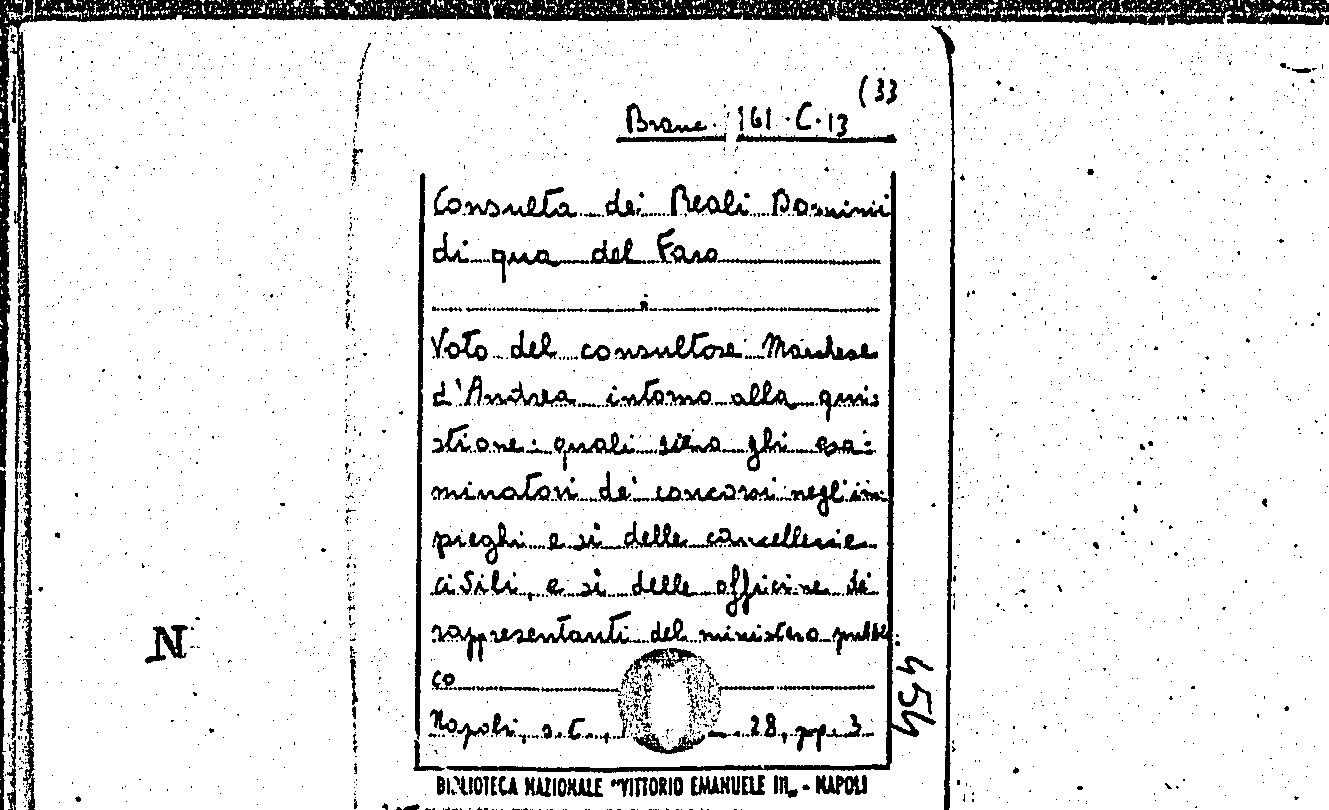 (33
Branc. 161.C.13
Consulta dei Reali Dominii
di qua del Faro
Voto del consultore Marchese
d'Andrea intorno alla qui-
stione: quali sieno gli esa-
minatori de' concorsi negl'im
pieghi e sì delle cancellerie
civili, e sì delle officine di
rappresentanti del ministero pubbli
co
Napoli, s.t., 28, pp. 3
454
N
BIBLIOTECA NAZIONALE "VITTORIO EMANUELE III" - NAPOLI